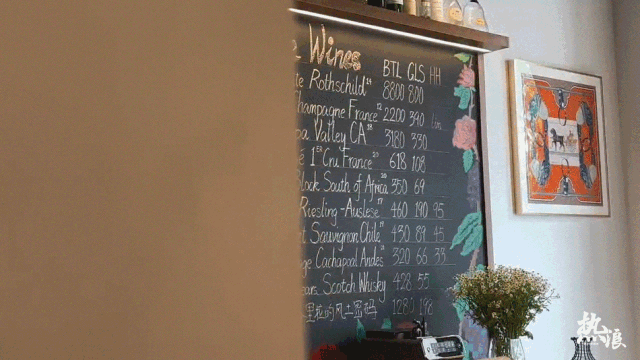 Wines
BTL GLS HH
Rothschild 8800 800
Champagne France 12 2200 390
Valley CA 18 3180 330
1er Cru France 20 618 108
South of Africa 20 350 69
Riesling-Auslese 17 460 190 95
Sauvignon Chile 430 89 45
Cachapoal Andes 320 66 33
Scotch Whisky 428 55
1280 198
热浪